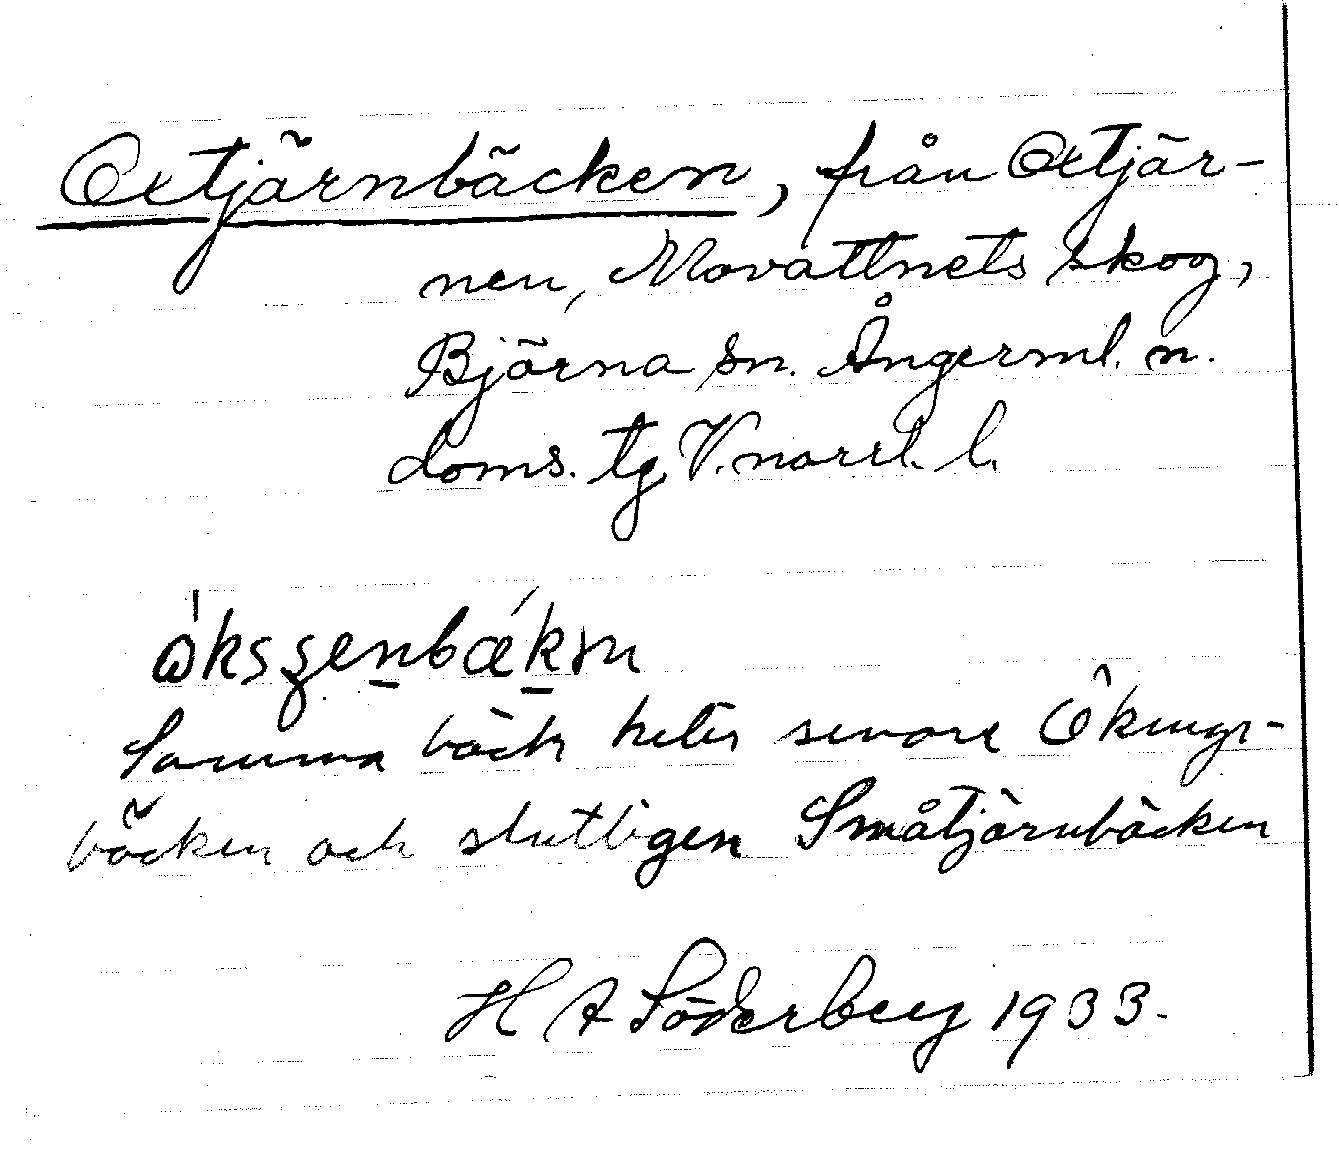 Oxtjärnbäcken, från Oxtjär-
nen, Movattnets skog,
Bjärna sn. Ångerml. n.
doms. tg V.norrl. l.
Samma bäck heter senare
bäcken och slutligen Småtjärnbäcken
H A Söderberg 1933.